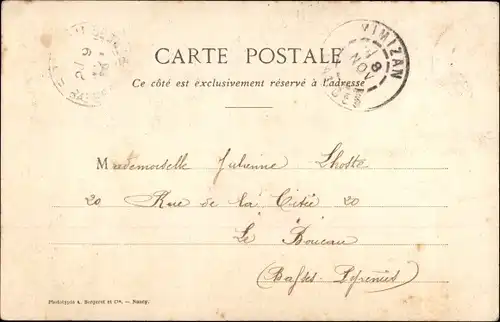 CARTE POSTALE
Ce côté est exclusivement réservé à l'adresse
MIMIZAN
8 NOV
Mademoiselle Julienne Lhoste
20 Rue de la Citée 20
Le Boucau
(Basses-Pyrénées)
Phototypie A. Bergeret et Cie. – Nancy.